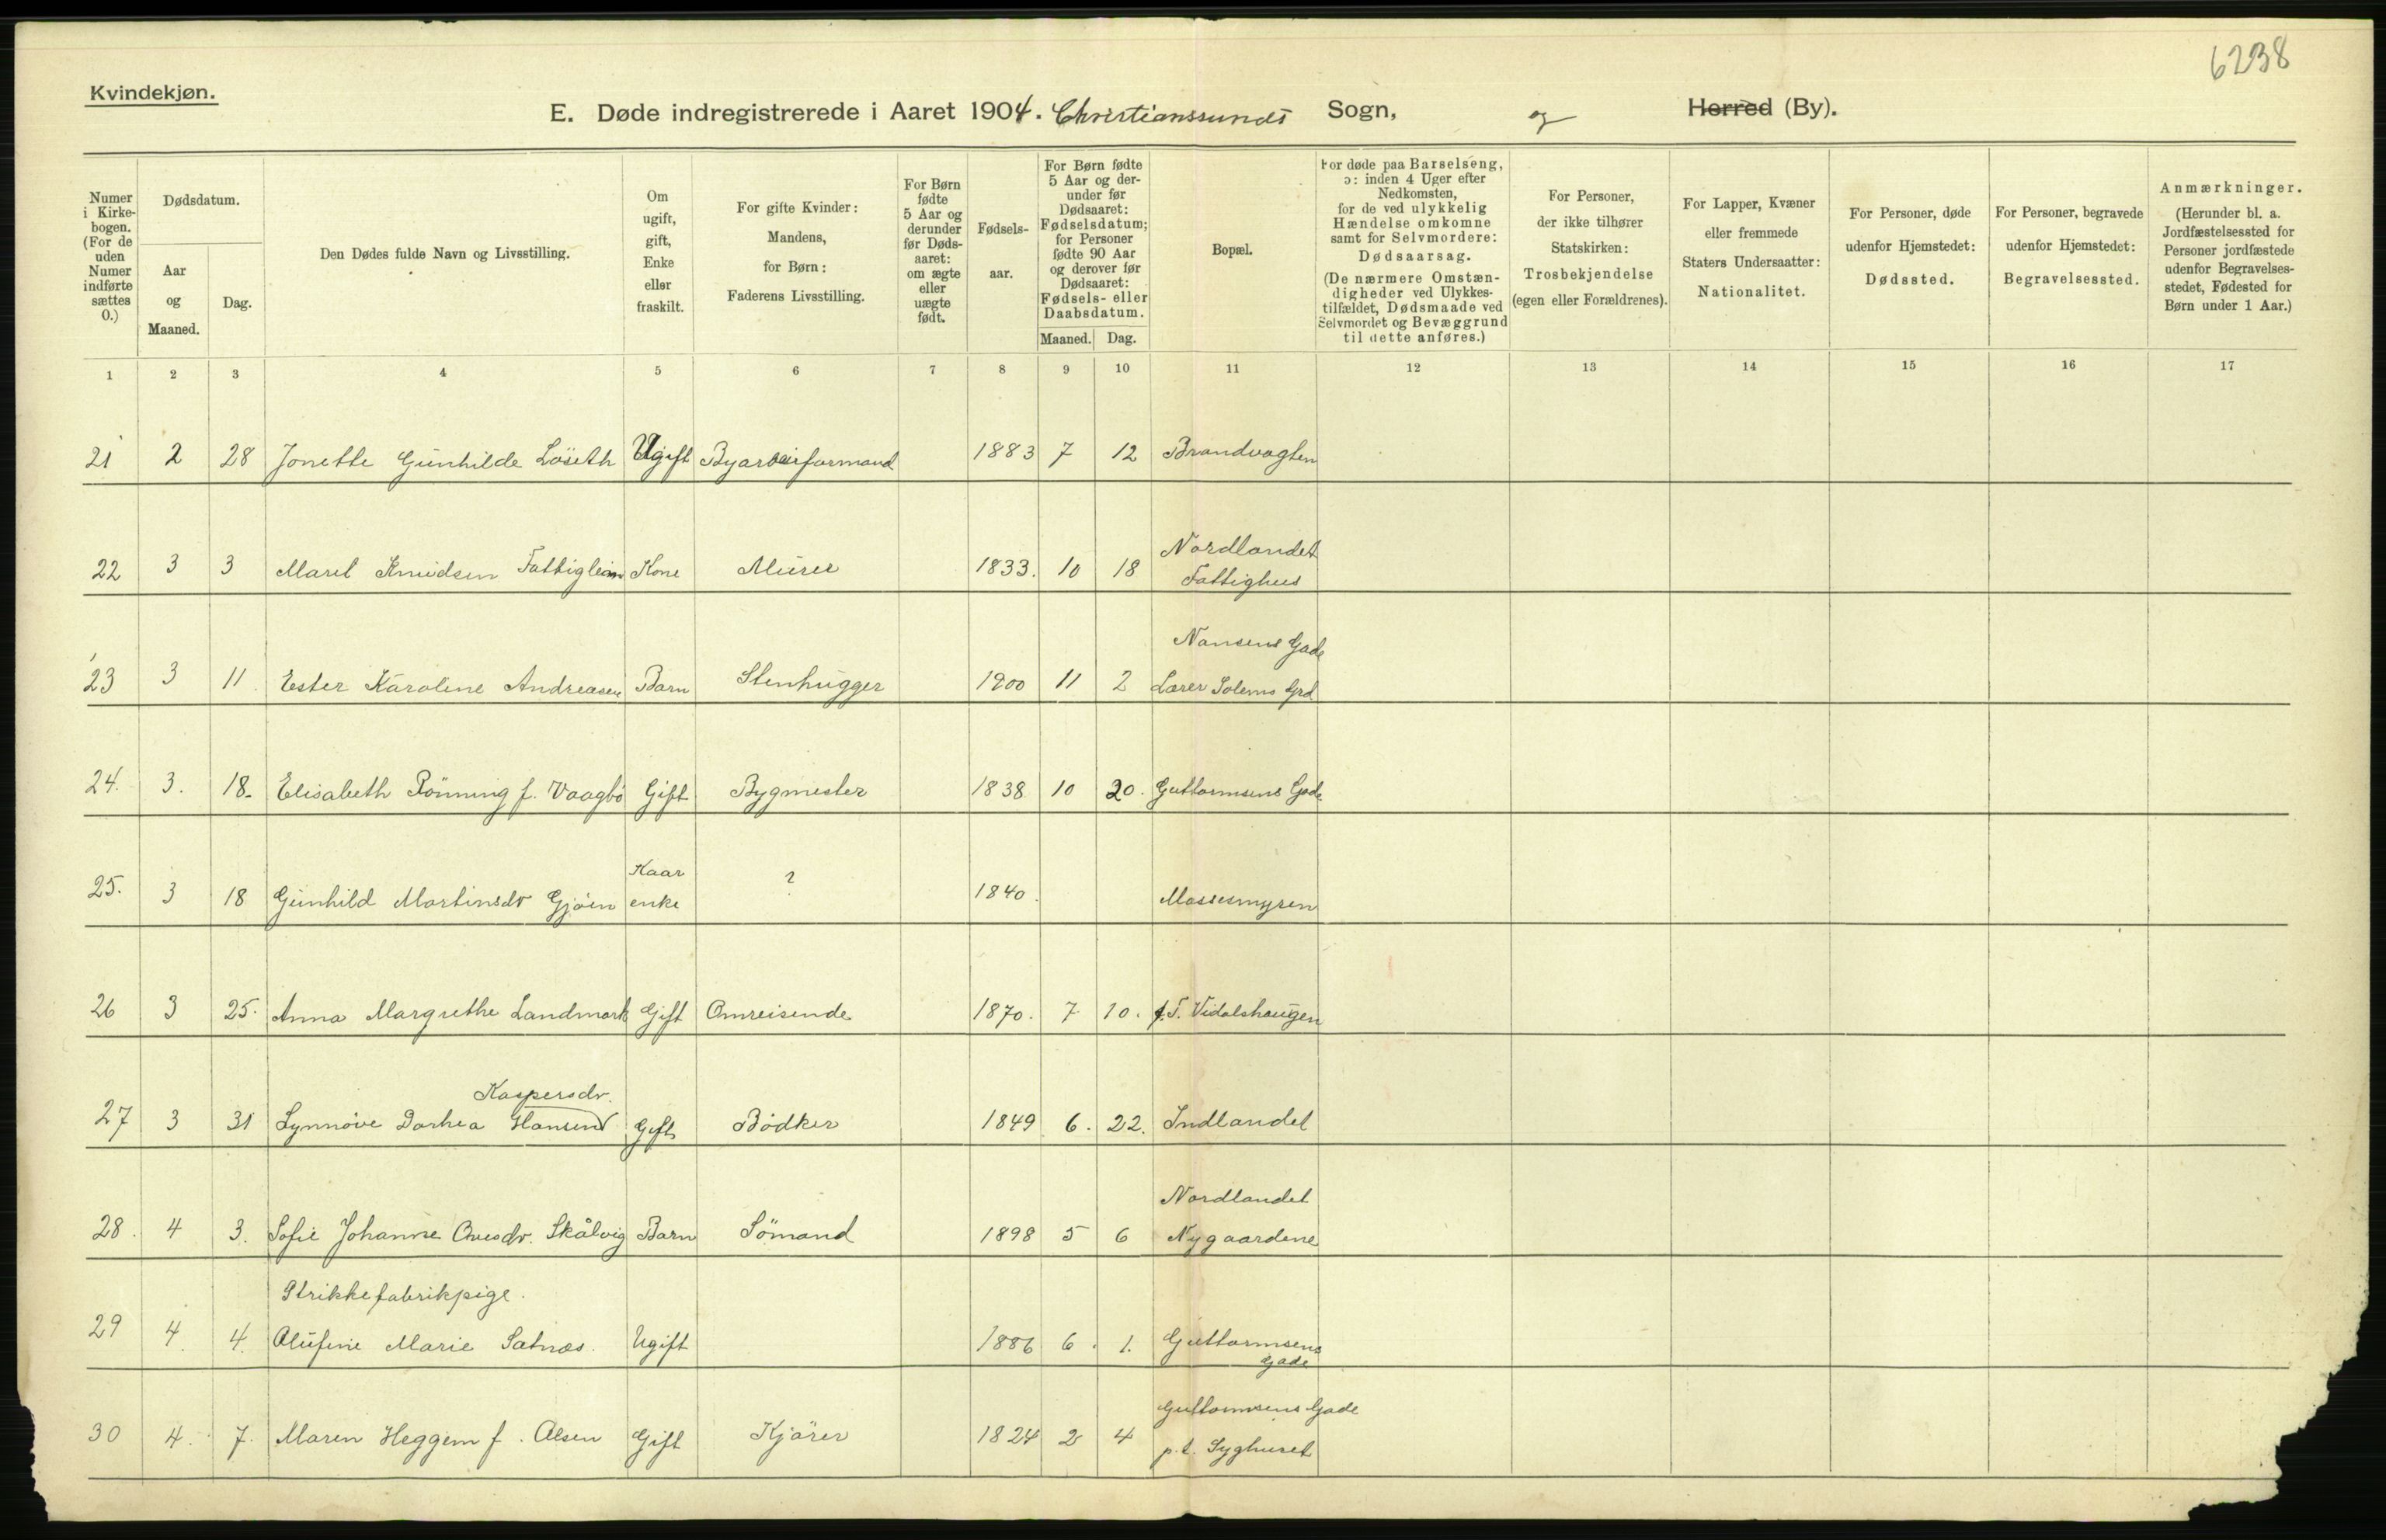 6238
Kvindekjøn.
E. Døde indregistrerede i Aaret 1904. Christianssunds Sogn, og Herred (By).
Numer i Kirkebogen. (For de uden Numer indførte sættes 0.)
Dødsdatum.
Aar og Maaned.
Dag.
Den Dødes fulde Navn og Livsstilling.
Om ugift, gift, Enke eller fraskilt.
For gifte Kvinder: Mandens, for Børn: Faderens Livsstilling.
For Børn fødte 5 Aar og derunder før Dødsaaret: om ægte eller uægte født.
Fødselsaar.
For Børn fødte 5 Aar og derunder før Dødsaaret: Fødselsdatum; for Personer fødte 90 Aar og derover før Dødsaaret: Fødsels- eller Daabsdatum.
Maaned. Dag.
Bopæl.
For døde paa Barselseng, ɔ: inden 4 Uger efter Nedkomsten, for de ved ulykkelig Hændelse omkomne samt for Selvmordere: Dødsaarsag. (De nærmere Omstændigheder ved Ulykkestilfældet, Dødsmaade ved Selvmordet og Bevæggrund til dette anføres.)
For Personer, der ikke tilhører Statskirken: Trosbekjendelse (egen eller Forældrenes).
For Lapper, Kvæner eller fremmede Staters Undersaatter: Nationalitet.
For Personer, døde udenfor Hjemstedet: Dødssted.
For Personer, begravede udenfor Hjemstedet: Begravelsessted.
Anmærkninger. (Herunder bl. a. Jordfæstelsessted for Personer jordfæstede udenfor Begravelsesstedet, Fødested for Børn under 1 Aar.)
1 2 3 4 5 6 7 8 9 10 11 12 13 14 15 16 17
21 2 28 Jonette Gunhilde Löseth Ugift Byarbeiformand 1883 7 12 Brandvagten
Nordlandet
22 3 3 Marit Knudsen Fattiglem Kone Murer 1833. 10 18 Fattighus
Nansens Gade
23 3 11 Ester Karoline Andreasen Barn Stenhugger 1900 11 2 Lærer Solems Grd
24. 3. 18. Elisabeth Rönning f. Vaagbö Gift Bygmester 1838 10 20. Guttormsens Gade
Kaar
25. 3 18 Gunhild Martinsdr Gjöen enke ? 1840. Massesmyren
26 3 25. Anna Margrethe Landmark Gift Omreisende 1870. 7 10. Vidalshaugen
Kaspersdr.
27 3 31 Synnöve Dorhea Hansen Gift Bödker 1849 6. 22. Indlandet
Nordlandet
28. 4 3. Sofie Johanne Ovesdr. Skålvig Barn Sömand 1898 5 6 Nygaardene
Strikkefabrikpige.
29 4. 4. Olufine Marie Satnæs. Ugift 1886 6. 1. Guttormsens
Gade
Guttormsens Gade
30 4. 7. Maren Heggem f. Olsen Gift Kjörer 1824 2 4 p.t. Syghuset